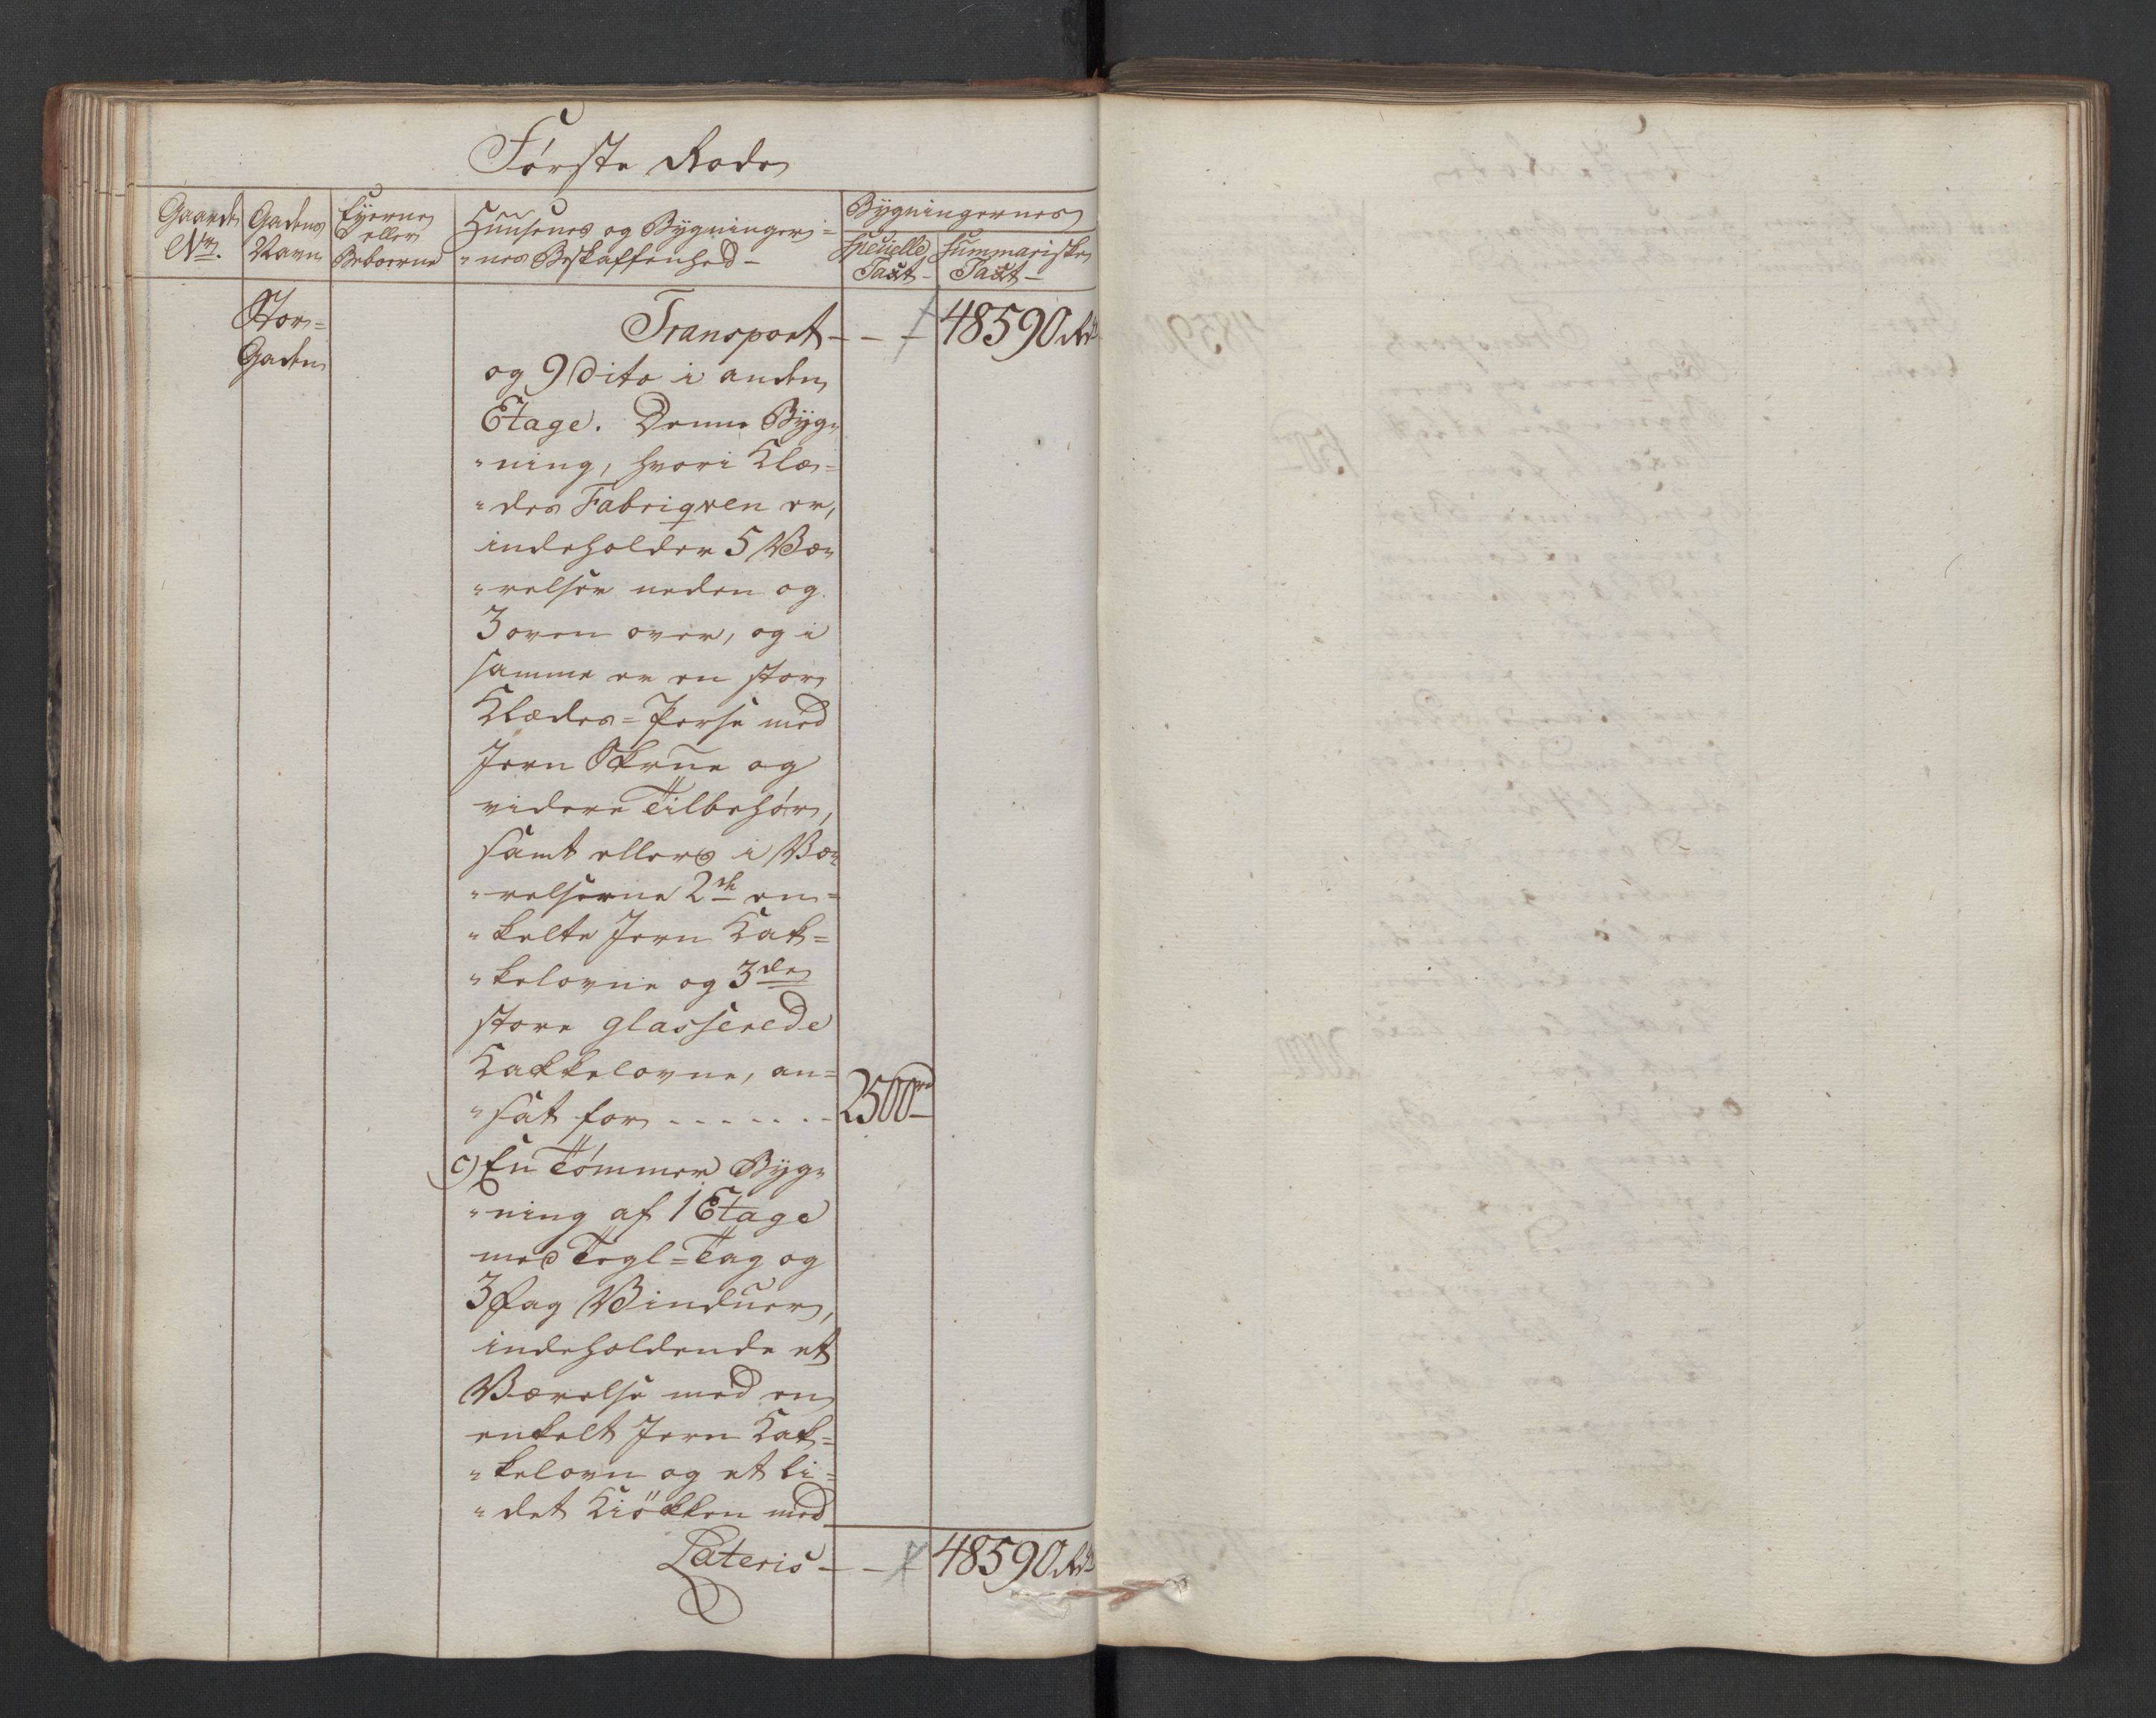 Første Rode
Gaardens Nr.
Gadens Navn
Eyerne eller Beboerne
Huusenes og Bygninger=
"nes Beskaffenhed-
Bygningernes
Specielle Taxt-
Summariske Taxt-
Stor=
Gaden
Transport - - 48590 Rdr
og 9 dito i anden
Etage. Denne Byg=
"ning, hvori Klæ=
"des Fabriqven er,
indeholder 5 Væ=
"relser neden og
3 oven over, og i
samme er en stor
Klædes=Perse med
Jern Skrue og
videre Tilbehør,
samt ellers i Væ=
"relserne 2de en=
"kelte Jern Kak=
"kelovne og 3de
store glasserede
Kakkelovne, an=
"sat for - - - - - - - 2500 rd
c) En Tømmer Byg=
"ning af 1 Etage
med Tegl=Tag og
3 Fag Vinduer,
indeholdende et
Værelse med en
enkelt Jern Kak=
"kelovn og et li=
"det Kiökken med
Lateris - - 48590 Rdr